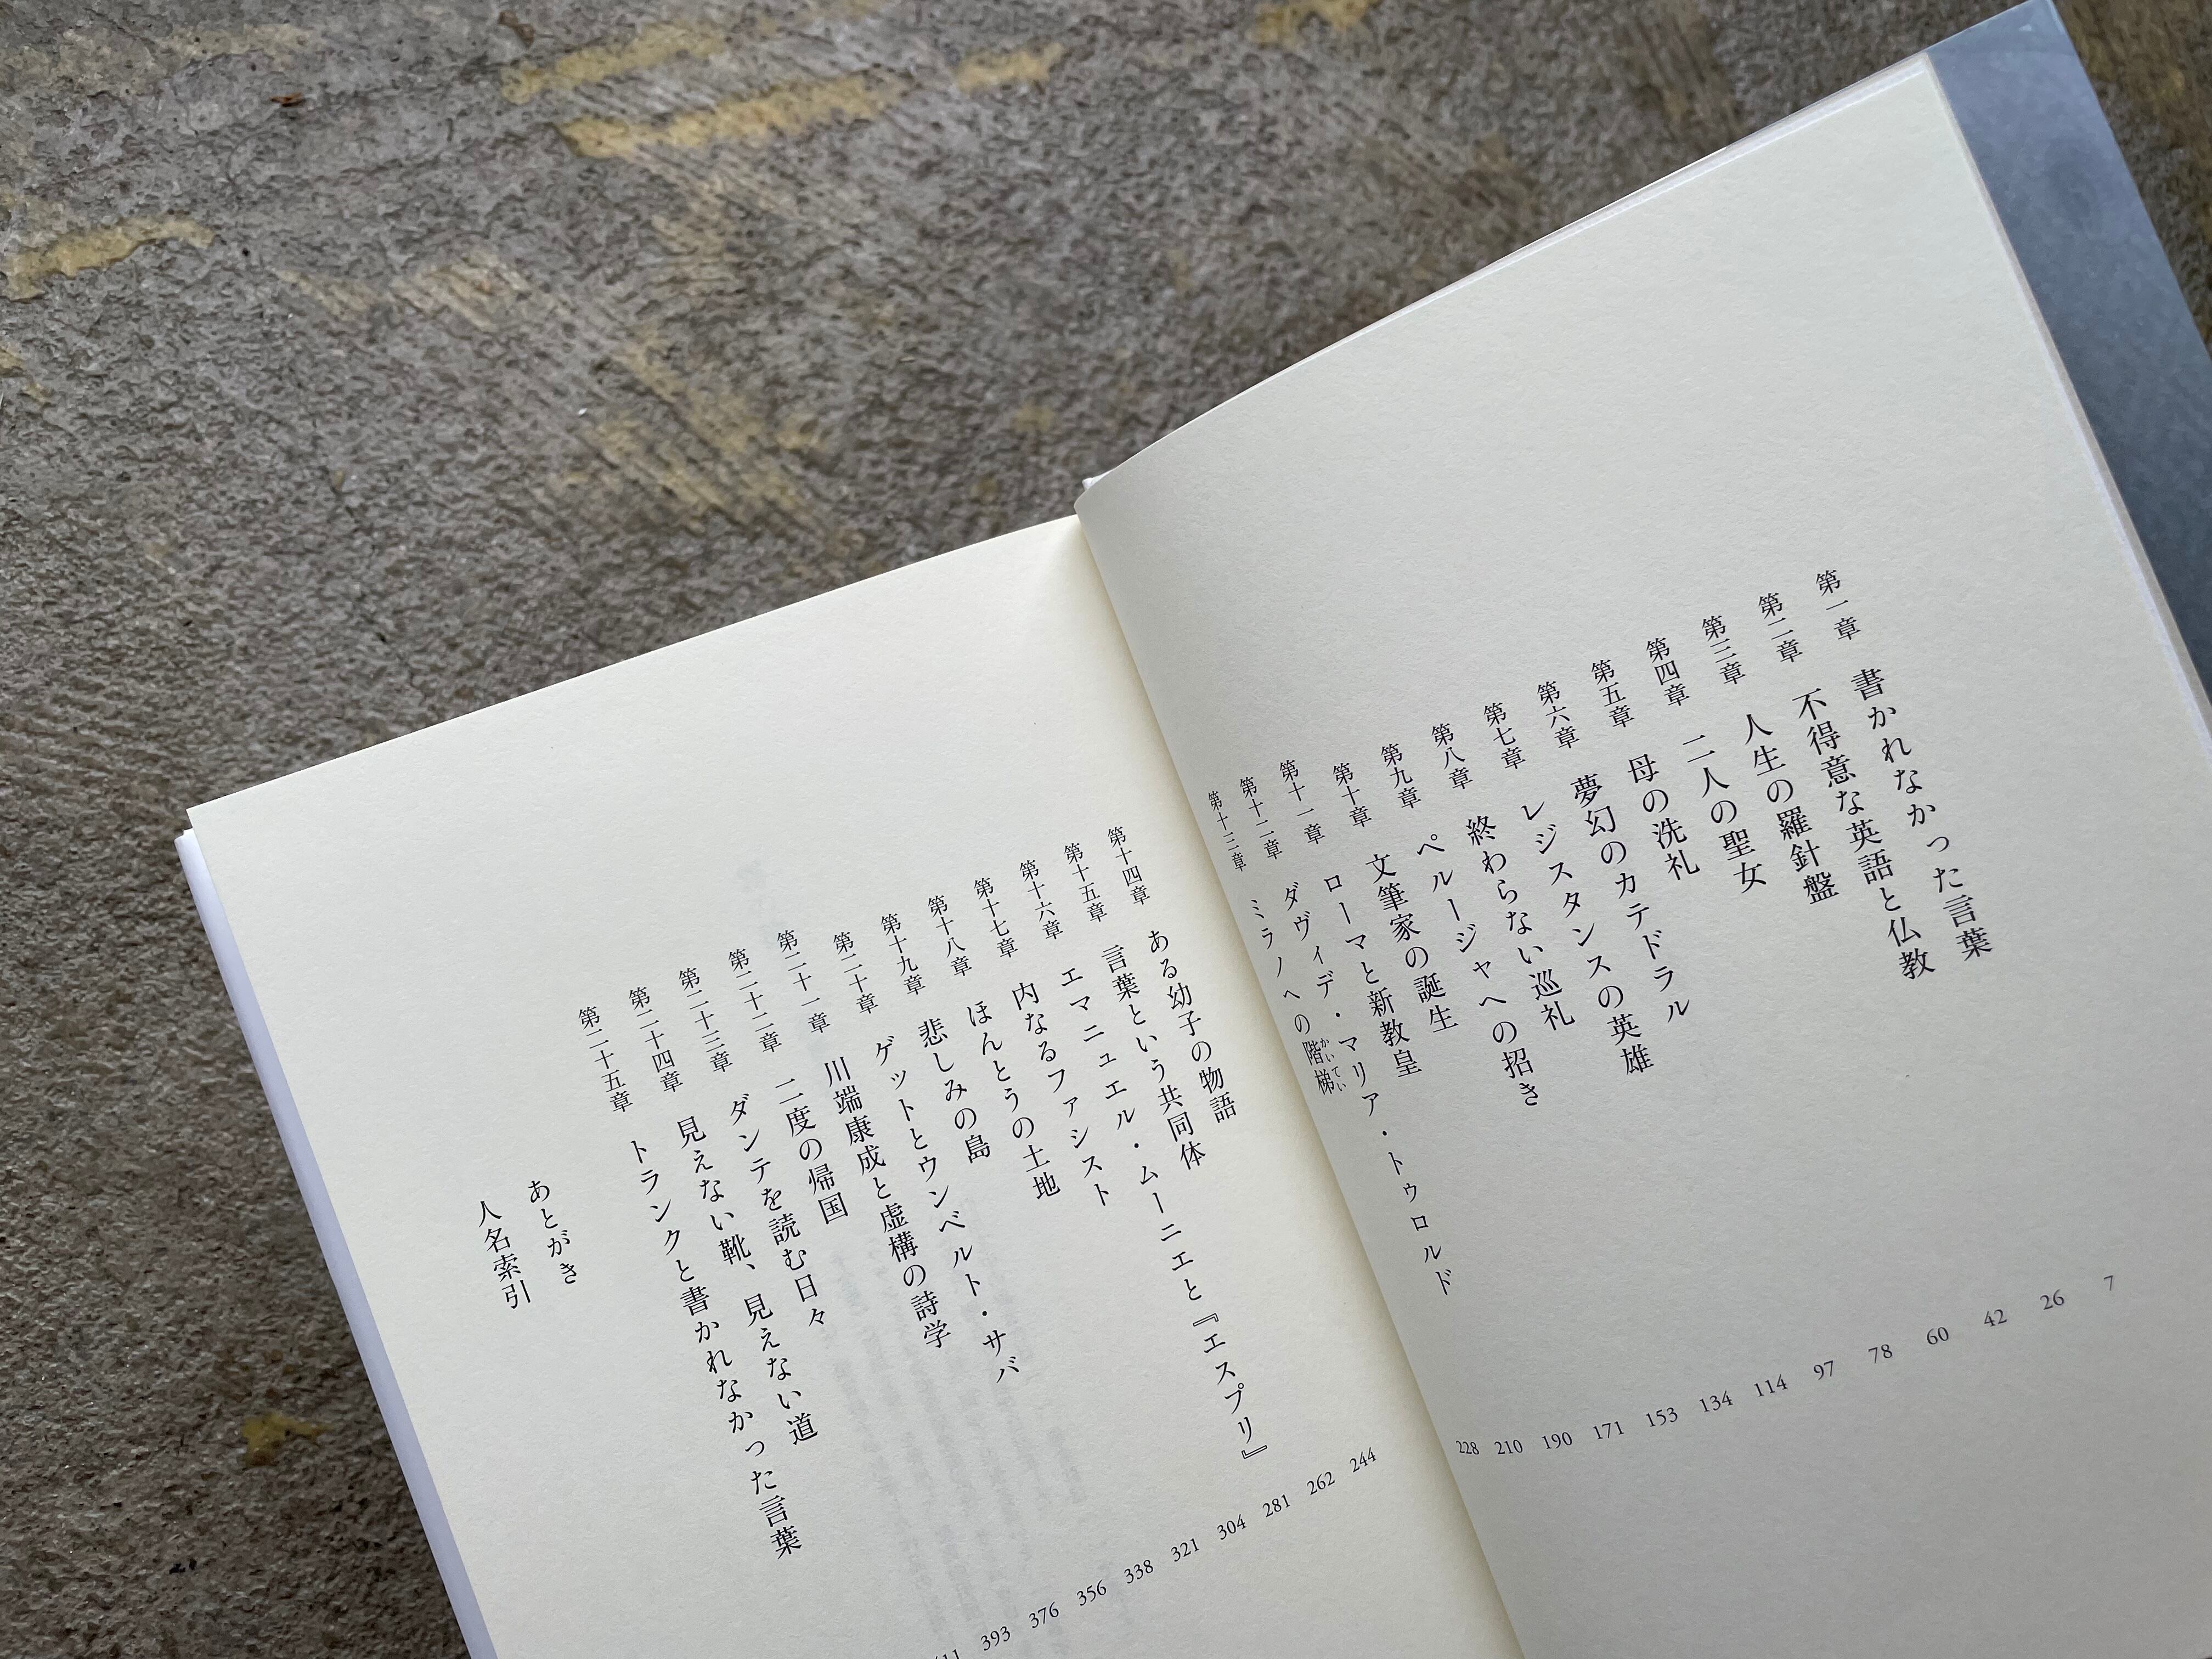 第一章 書かれなかった言葉 7
第二章 不得意な英語と仏教 26
第三章 人生の羅針盤 42
第四章 二人の聖女 60
第五章 母の洗礼 78
第六章 夢幻のカテドラル 97
第七章 レジスタンスの英雄 114
第八章 終わらない巡礼 134
第九章 ペルージャへの招き 153
第十章 文筆家の誕生 171
第十一章 ローマと新教皇 190
第十二章 ダヴィデ・マリア・トゥロルド 210
第十三章 ミラノへの階梯 かいてい 228
第十四章 ある幼子の物語 244
第十五章 言葉という共同体 262
第十六章 エマニュエル・ムーニエと『エスプリ』 281
第十七章 内なるファシスト 304
第十八章 ほんとうの土地 321
第十九章 悲しみの島 338
第二十章 ゲットとウンベルト・サバ 356
第二十一章 川端康成と虚構の詩学 376
第二十二章 二度の帰国 393
第二十三章 ダンテを読む日々
第二十四章 見えない靴、見えない道
第二十五章 トランクと書かれなかった言葉
あとがき
人名索引